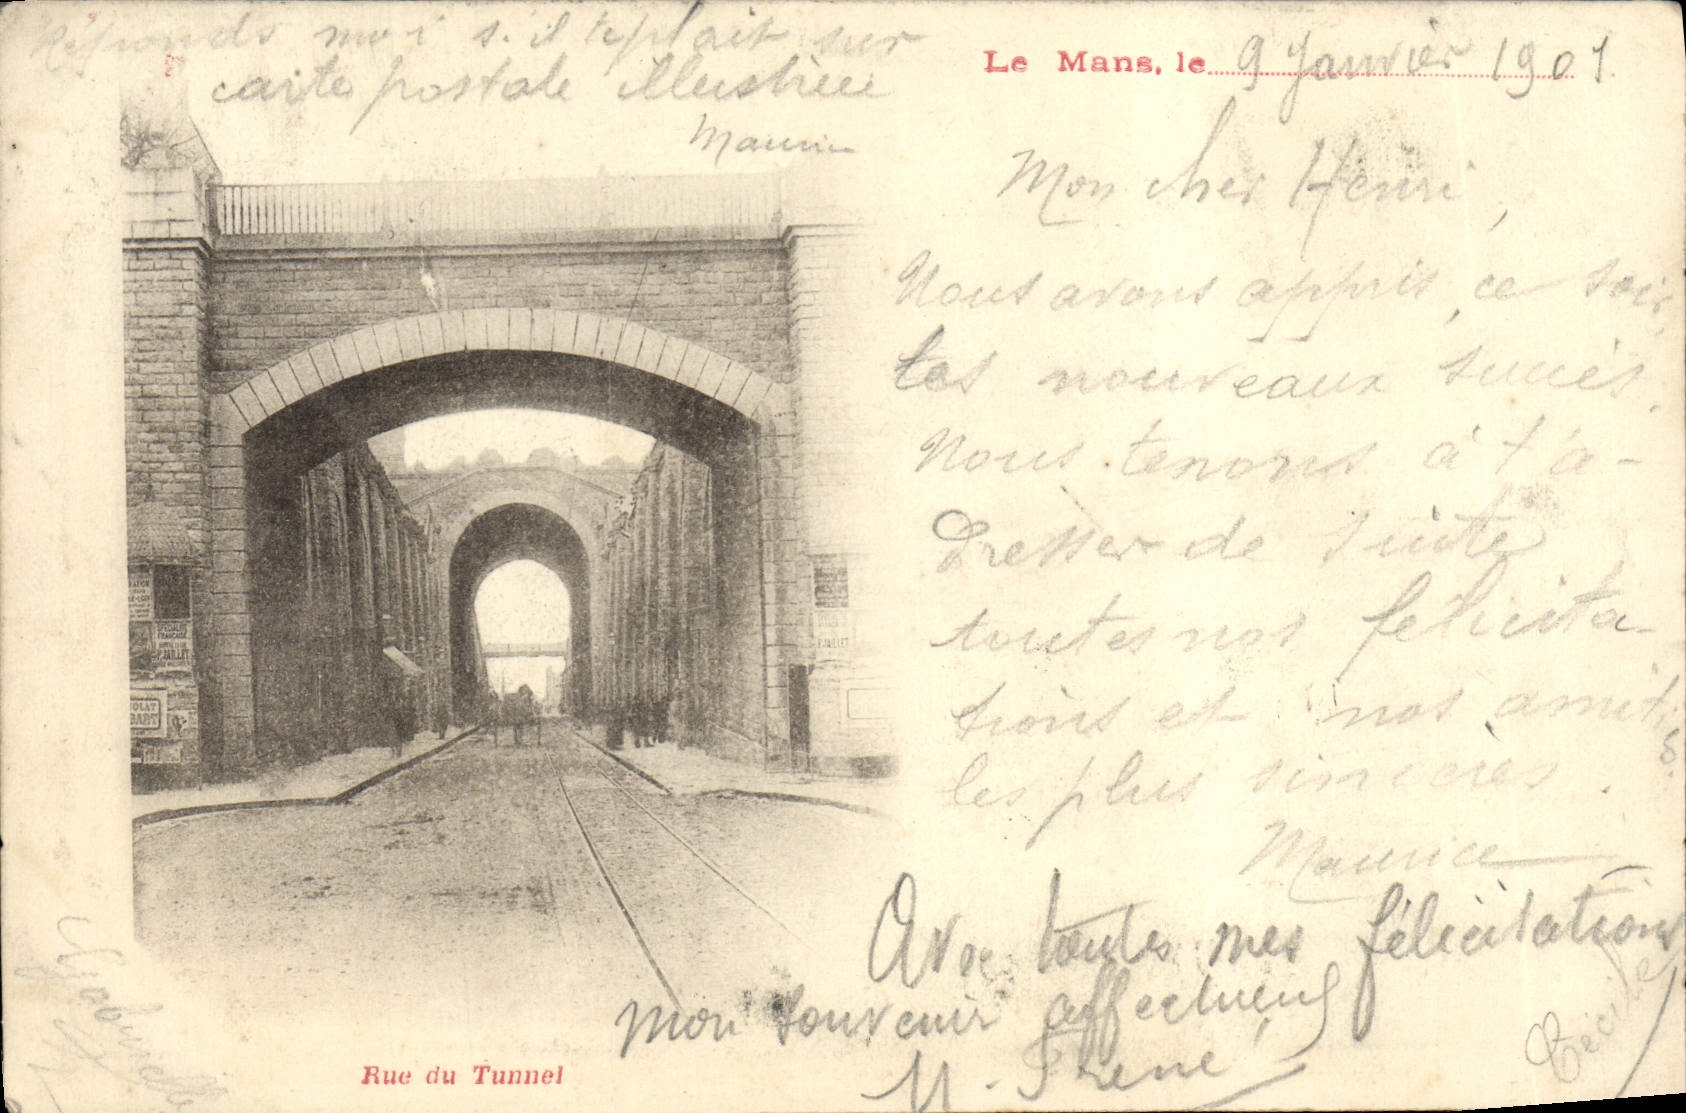 Réponds moi s.il te plait sur
carte postale illustrée
Maurice
Le Mans, le 9 Janvier 1901
Mon cher Henri,
Nous avons appris, ce soir,
tes nouveaux succès.
Nous tenons à t'a-
dresser de suite
toutes nos félicita-
tions et nos amitiés
les plus sincères.
Maurice
Avec toutes mes félicitations
mon souvenir affectueux
Cécile
Gabrielle
SPECIALITE
FRANCAISE
P. JAILLET
P. JAILLET
Rue du Tunnel